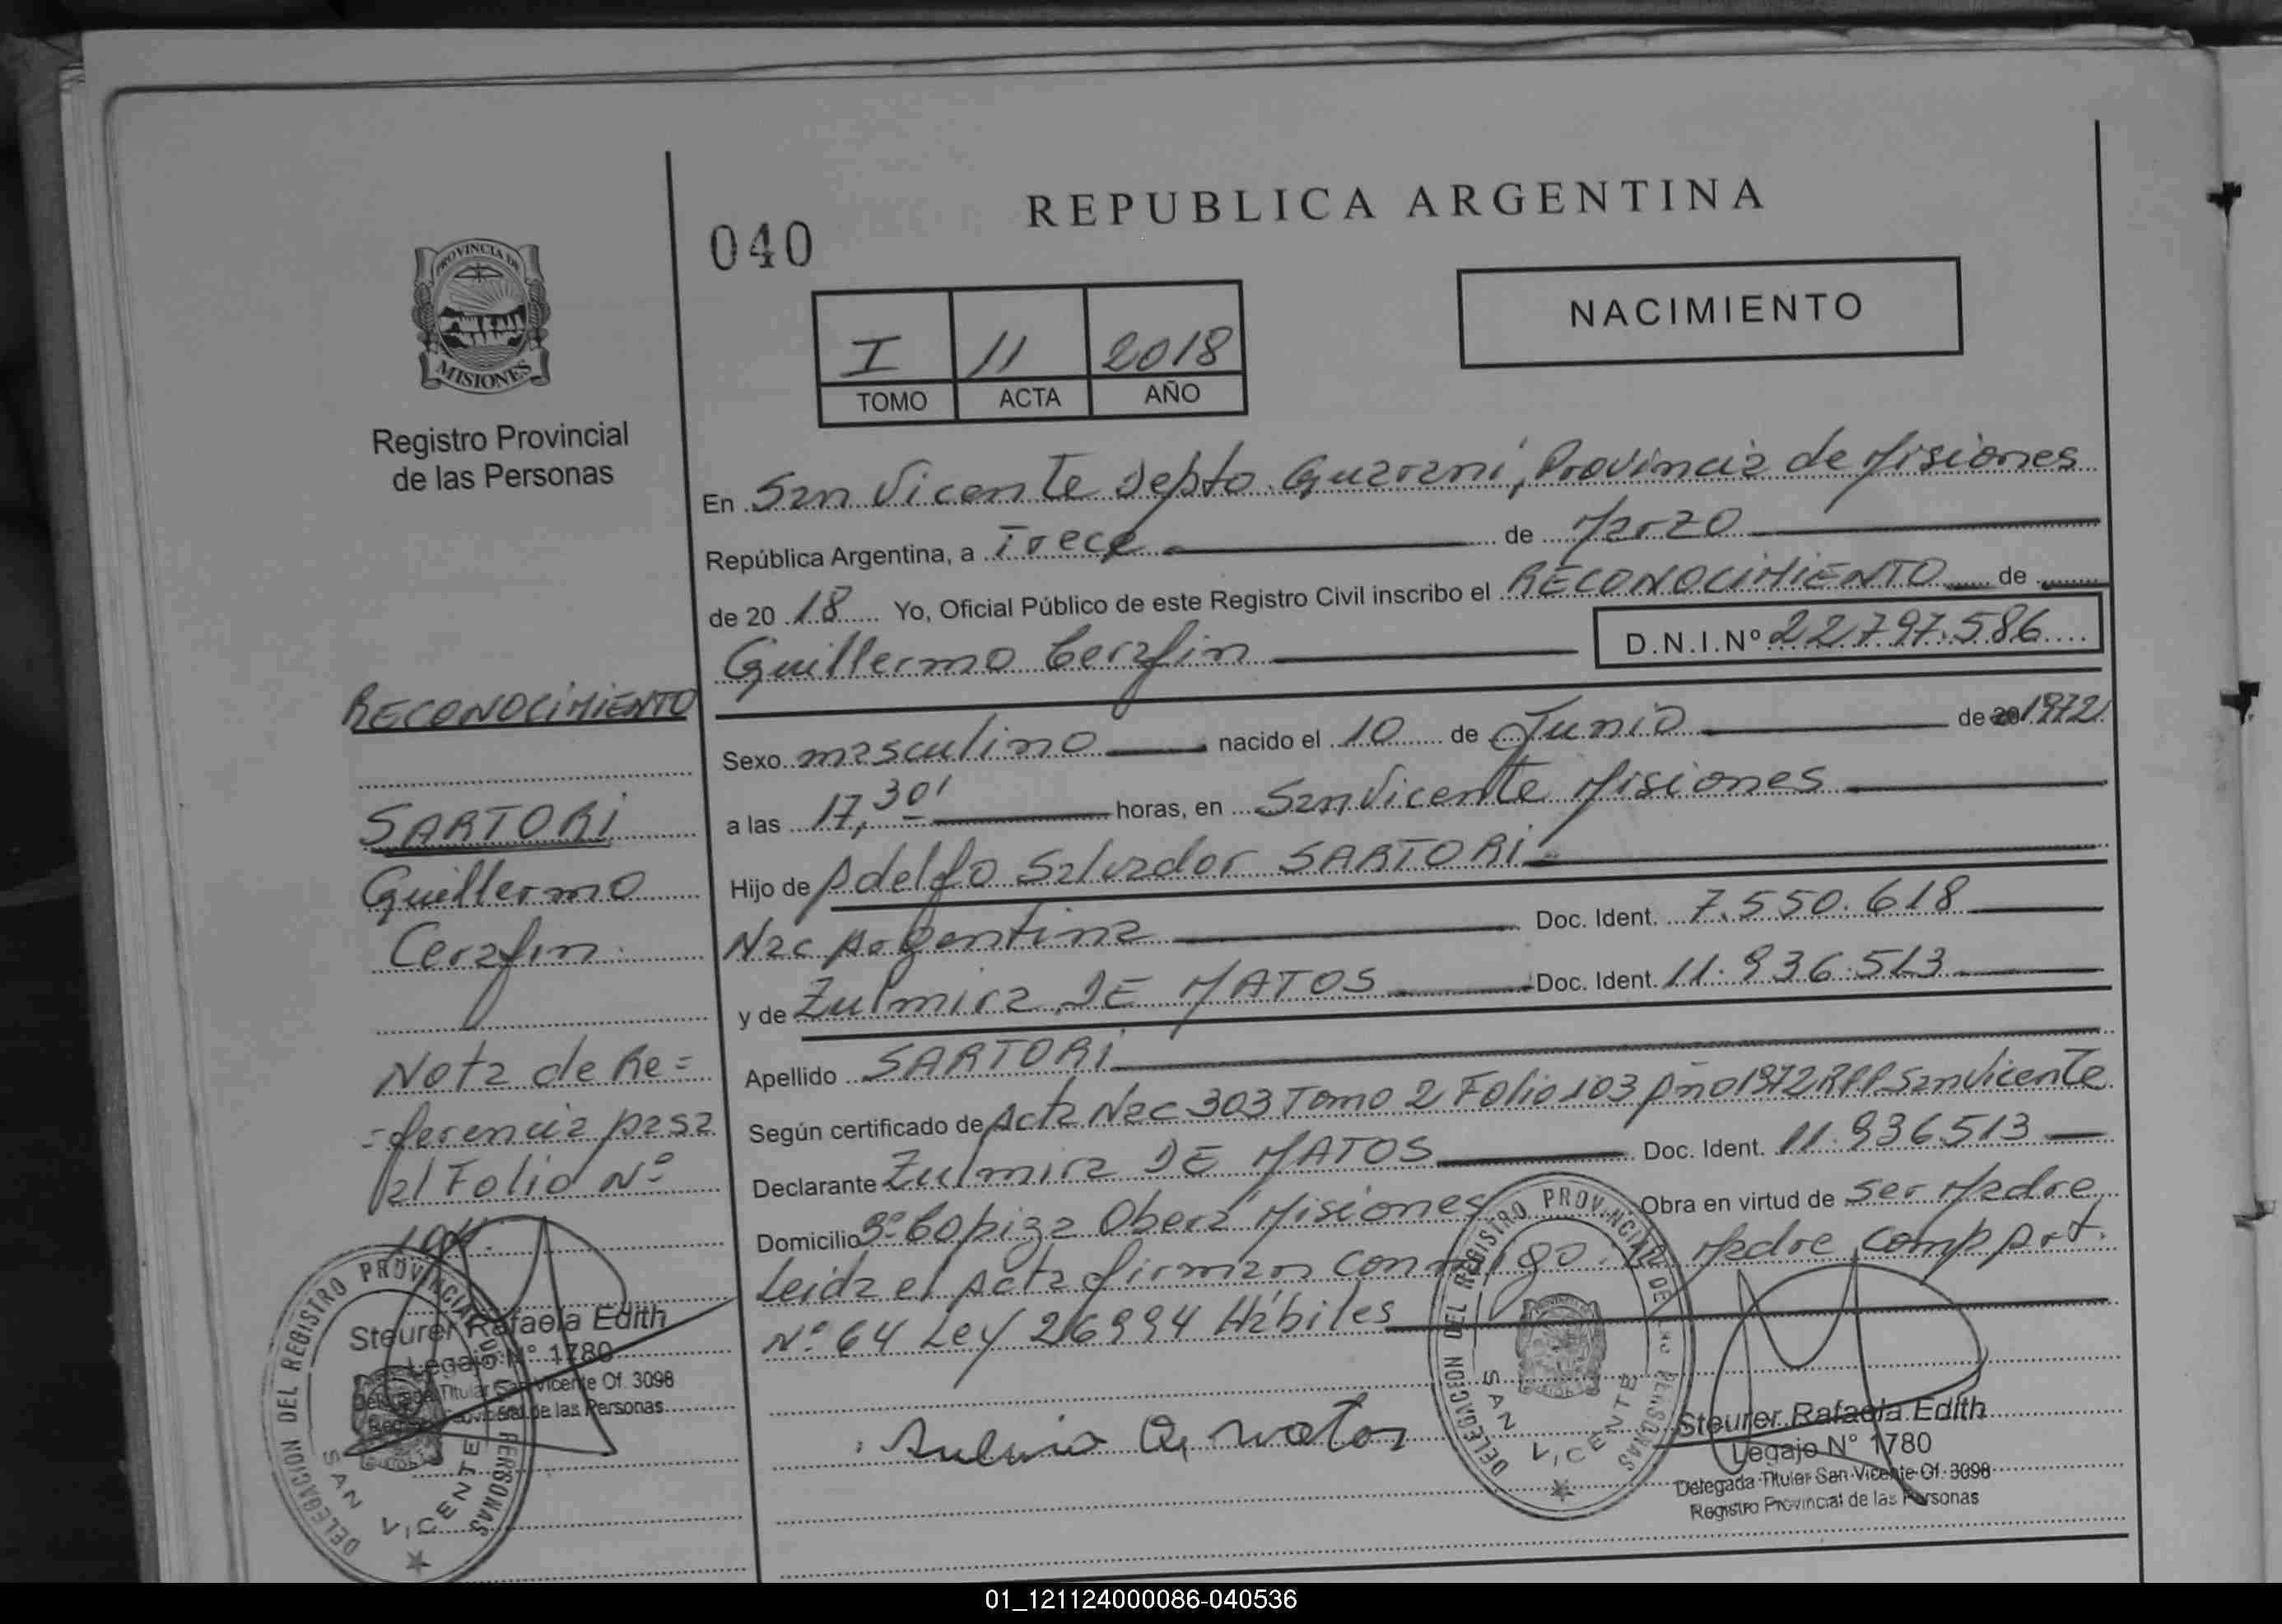 REPUBLICA ARGENTINA
040
NACIMIENTO
PROVINCIA DE
MISIONES
I 11 2018
TOMO ACTA AÑO
Registro Provincial
de las Personas
En San Vicente Depto Guarani, Provincia de Misiones
República Argentina, a Trece de Marzo
de 20 18 Yo, Oficial Público de este Registro Civil inscribo el RECONOCIMIENTO de
Guillermo Cerafin D.N.I.Nº 22.797.586
Sexo masculino nacido el 10 de Junio de 20 1972
a las 17,30' horas, en San Vicente Misiones
Hijo de Adelfo Salvador SARTORI
Nac Argentina Doc. Ident. 7.550.618
y de Zulmira DE MATOS Doc. Ident. 11.936.513
Apellido SARTORI
Según certificado de Acta Nac 303 Tomo 2 Folio 103 Año 1972 RPP San Vicente
Declarante Zulmira DE MATOS Doc. Ident. 11.936513
Domicilio Bº Copiza Obera Misiones Obra en virtud de ser Madre
Leida el Acta firman conmigo la Madre comp Art.
Nº 64 Ley 26994 Hábiles
Steurer Rafaela Edith
Legajo N° 1780
Delegada Titular San Vicente Of. 3098
Registro Provincial de las Personas
DELEGACION DEL REGISTRO PROVINCIAL DE LAS PERSONAS
SAN VICENTE
RECONOCIMIENTO
SARTORI
Guillermo
Cerafin
Nota de Re=
=ferencia pasa
al Folio Nº
Steurer Rafaela Edith
Legajo N° 1780
Delegada Titular San Vicente Of. 3098
Registro Provincial de las Personas
DELEGACION DEL REGISTRO PROVINCIAL DE LAS PERSONAS
SAN VICENTE
01_121124000086-040536